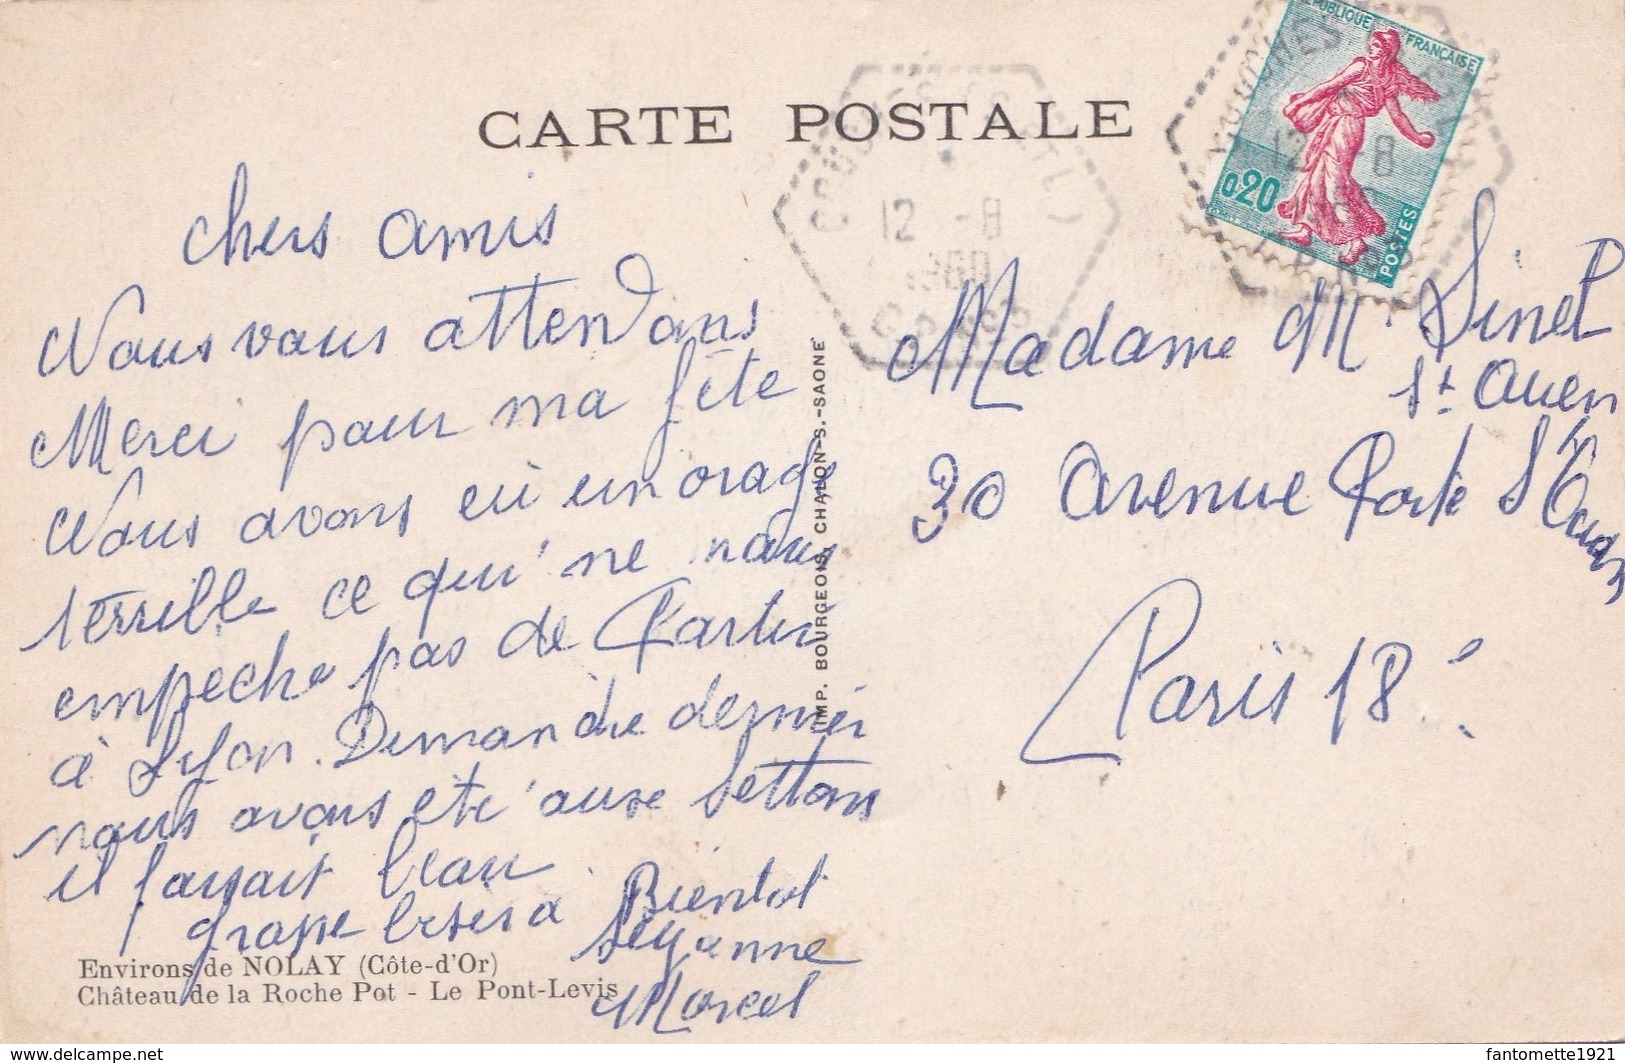 CARTE POSTALE
RÉPUBLIQUE FRANÇAISE
0,20
POSTES
12 -8
1960
12 -8
chers amis
Nous vous attendons
Merci pour ma fête
Nous avons eü un orage
terrille ce qui' ne nous
empeche pas de Partir
à Lyon. Dimanche dernier
nous avons ete' aux Settons
il faisait beau
grosse bises à Bientot
Suzanne
Marcel
Madame M. Sinet
St Ouen
30 Avenue Porte St Ouen
Paris 18e
IMP. BOURGEOIS, CHALON-S.-SAONE
Environs de NOLAY (Côte-d'Or)
Château de la Roche Pot - Le Pont-Levis
www.delcampe.net
fantomette1921